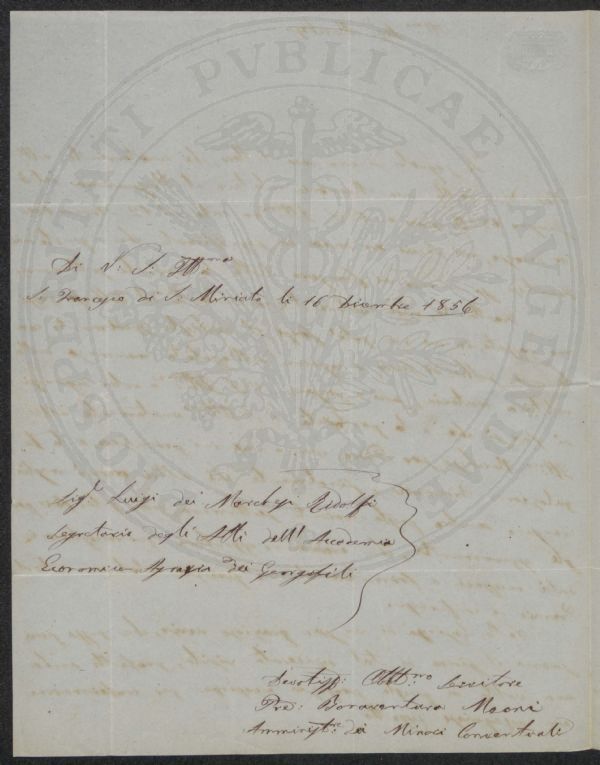 PROSPERITATI PVBLICAE AVGENDAE
Di V: S: Ill^ma
S. Francesco di S. Miniato li 16 Dicembre 1856
Sig^r Luigi dei Marchesi Ridolfi
Segretario degli Atti dell' Accademia
Economico Agraria dei Georgofili
Devotiss: Obb^mo Servitore
Pre: Bonaventura
Amminist^re dei Minori Conventuali